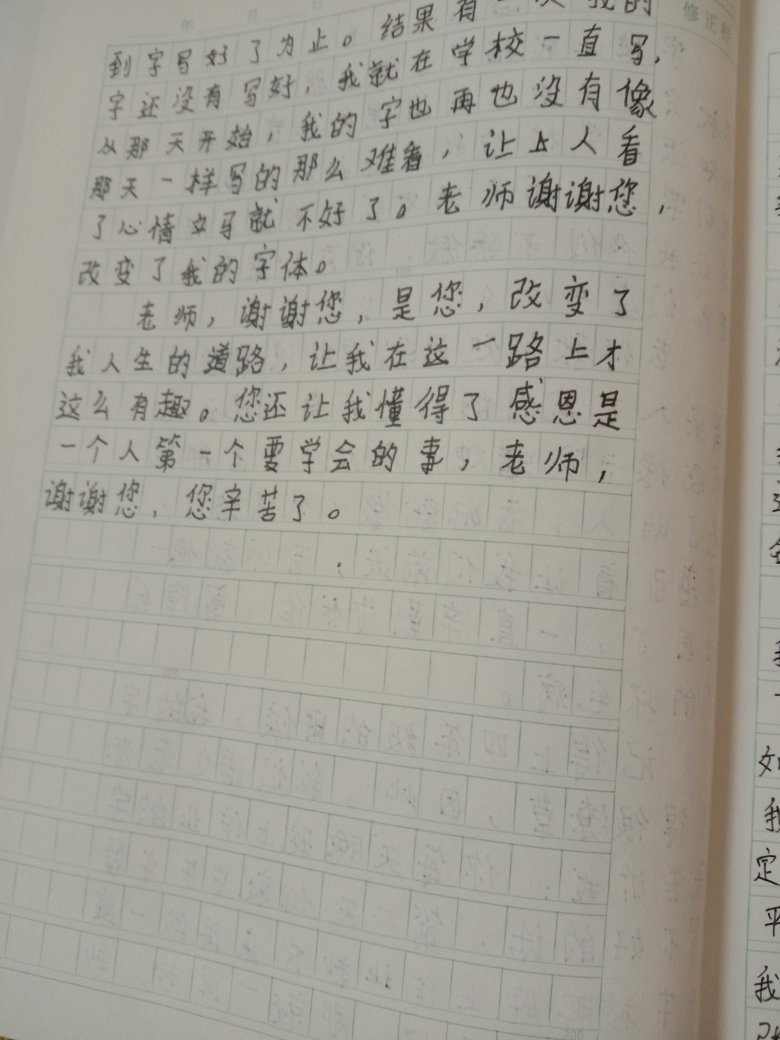 修正
到字写好了为止。结果有一次我的
字还没有写好，我就在学校一直写，
从那天开始，我的字也再也没有像
那天一样写的那么难看，让上人看
了心情立马就不好了。老师谢谢您，
改变了我的字体。
老师，谢谢您，是您，改变了
我人生的道路，让我在这一路上才
这么有趣。您还让我懂得了感恩是
一个人第一个要学会的事，老师，
谢谢您，您辛苦了。
如
我
定
平
我